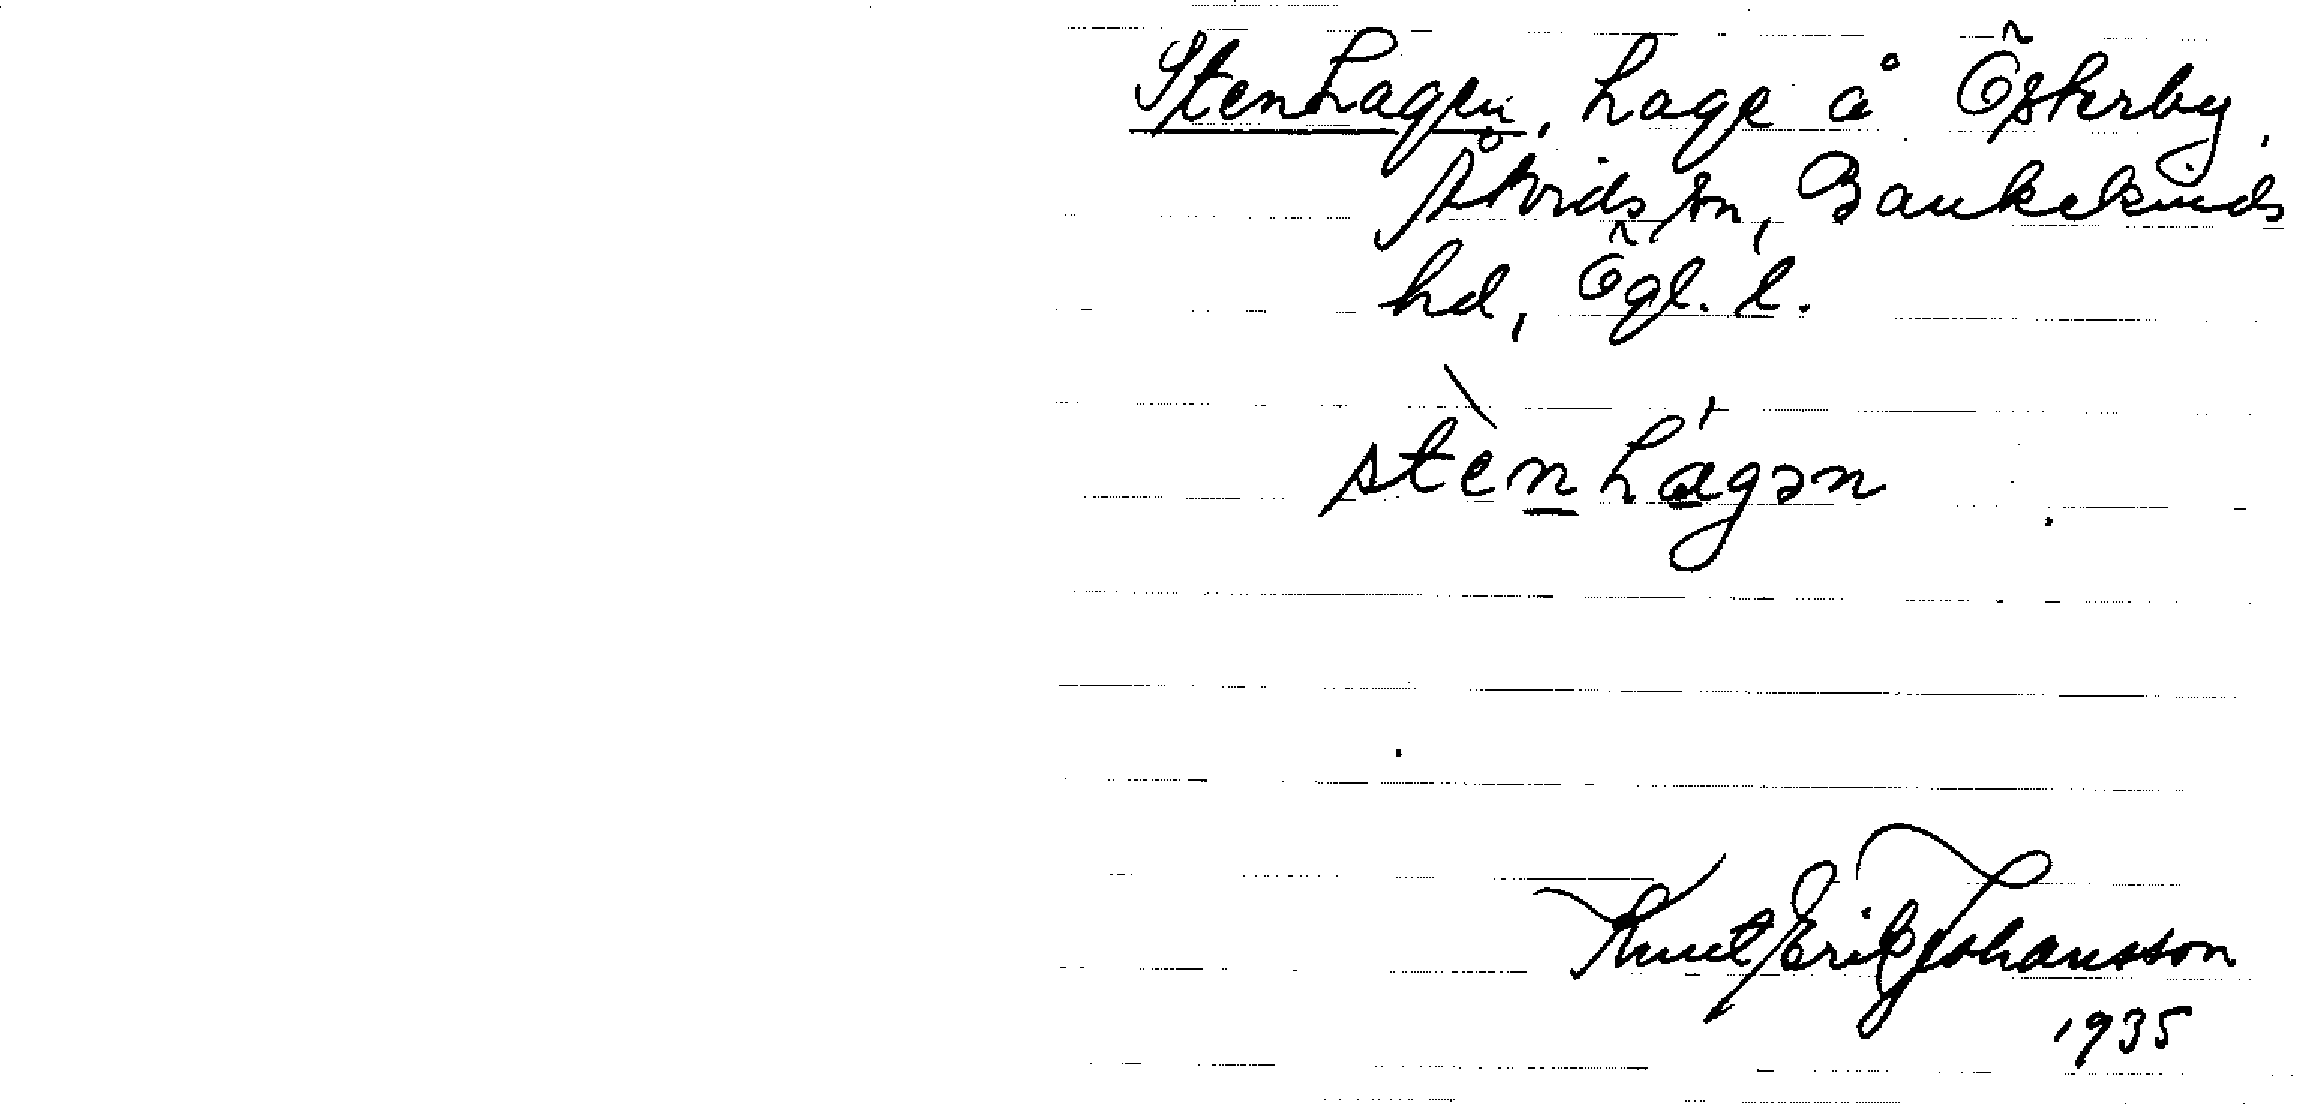 Stenhagen, hage å Österby,
Åtvids sn, Bankekinds
hd, Ögl. l.
stènhágən
Knut Erik Johansson
1935